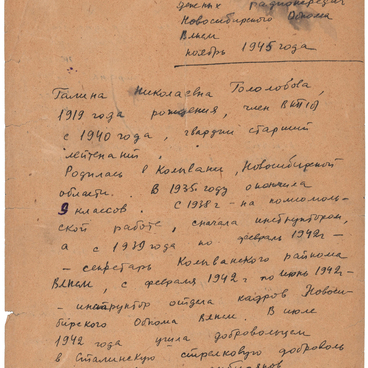 радиопередач
Новосибирского Обкома
ВЛКСМ
ноябрь 1945 года
Галина Николаевна Гололобова,
1919 года рождения, член ВКП(б)
с 1940 года, гвардии старший
лейтенант.
Родилась в Колывани, Новосибирской
области. В 1935 году окончила
9 классов. С 1938 г - на комсомоль-
ской работе, сначала инструктором,
а с 1939 года по февраль 1942 г -
- секретарь Колыванского райкома
ВЛКСМ, с февраля 1942 г по июнь 1942 г -
- инструктор отдела кадров Новоси-
бирского Обкома ВЛКСМ. В июле
1942 года ушла добровольцем
в Сталинскую стрелковую доброволь